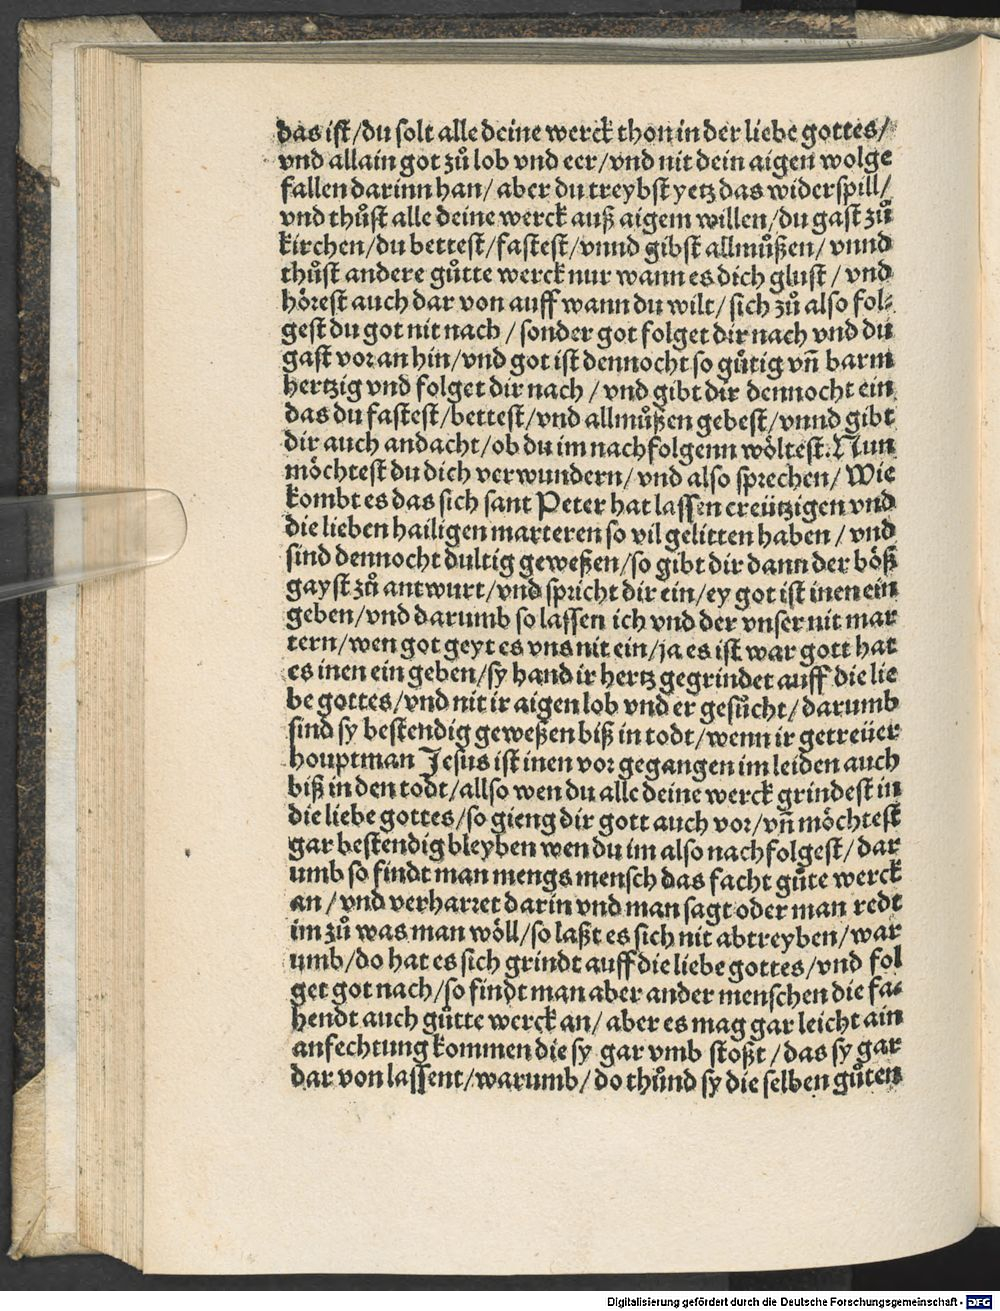 das ist/du solt alle deine werck thon in der liebe gottes/
vnd allain got zů lob vnd eer/vnd nit dein aigen wolge
fallen darinn han/ aber du treybst yetz das widerspill/
vnd thůst alle deine werck auß aigem willen/du gast zů
kirchen/du bettest/fastest/vnnd gibst allmůßen/ vnnd
thůst andere gůtte werck nur wann es dich glust / vnd
hörest auch dar von auff wann du wilt/ sich zů also fol⸗
gest du got nit nach / sonder got folget dir nach vnd du
gast voran hin/vnd got ist dennocht so gůtig vn̄ barm
hertzig vnd folget dir nach / vnd gibt dir dennocht ein
das du fastest/bettest/vnd allmůßen gebest/vnnd gibt
dir auch andacht/ob du im nachfolgenn wöltest. Nun
möchtest du dich verwundern/ vnd also sprechen/ Wie
kombt es das sich sant Peter hat lassen creützigen vnd
die lieben hailigen marteren so vil gelitten haben / vnd
sind dennocht dultig geweßen/so gibt dir dann der böß
gayst zů antwurt/vnd spricht dir ein/ey got ist inen ein
geben/vnd darumb so lassen ich vnd der vnser nit mar
tern/wen got geyt es vns nit ein/ja es ist war gott hat
es inen ein geben/sy hand ir hertz gegrindet auff die lie
be gottes/vnd nit ir aigen lob vnd er gesůcht/darumb
sind sy bestendig geweßen biß in todt/wenn ir getreüer
houptman Jesus ist inen vor gegangen im leiden auch
biß in den todt/allso wen du alle deine werck grindest in
die liebe gottes/so gieng dir gott auch vor/vn̄ möchtest
gar bestendig bleyben wen du im also nachfolgest/ dar
umb so findt man mengs mensch das facht gůte werck
an / vnd verharret darin vnd man sagt oder man redt
im zů was man wöll/so laßt es sich nit abtreyben/war
umb/do hat es sich grindt auff die liebe gottes/vnd fol
get got nach/so findt man aber ander menschen die fa⸗
hendt auch gůtte werck an/ aber es mag gar leicht ain
anfechtung kommen die sy gar vmb stoßt / das sy gar
dar von lassent/warumb/do thůnd sy die selben gůten
Digitalisierung gefördert durch die Deutsche Forschungsgemeinschaft - DFG